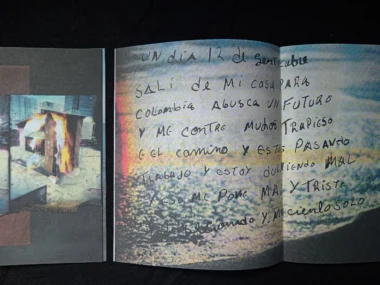 UN dia 12 de
SALi de Mi CASA PARA
Colombia ABUSCA UN FUTURO
Y ME CONTRE MUCHOS TRAPIESO
E EL CAMINO Y ESTOY PASANDO
TRABAJO Y ESTOY DURMIENDO MAL
Y ES ME PONE MAL Y TRiSTE
Y Mi cienTo SOLO